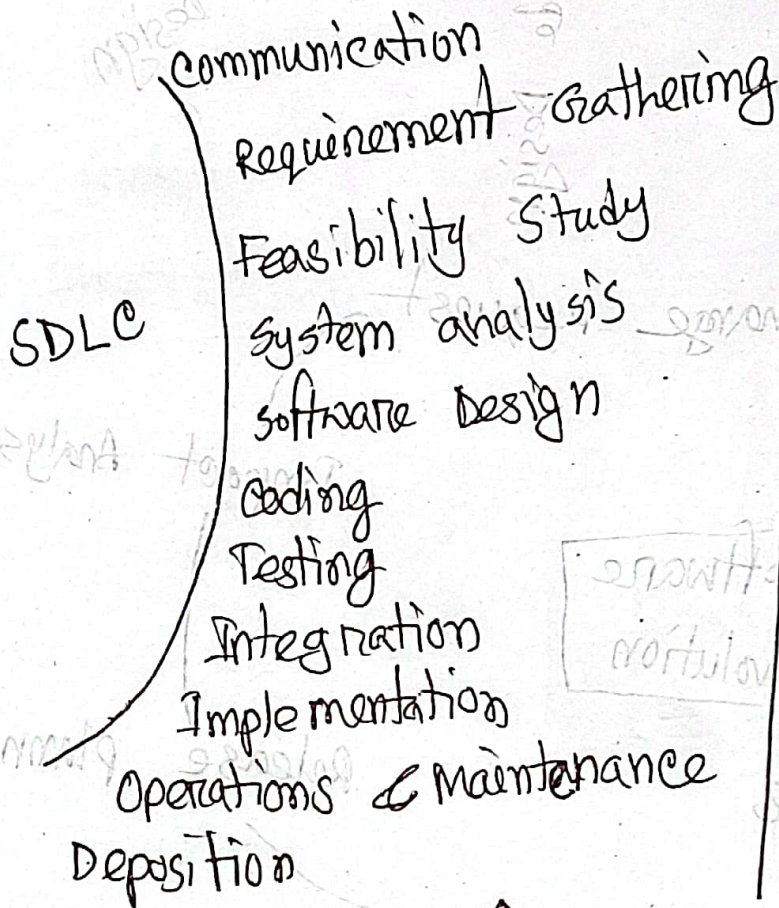 Communication
Requirement Gathering
Feasibility Study
SDLC
System analysis
Software Design
Coding
Testing
Integration
Implementation
Operations & Maintenance
Deposition